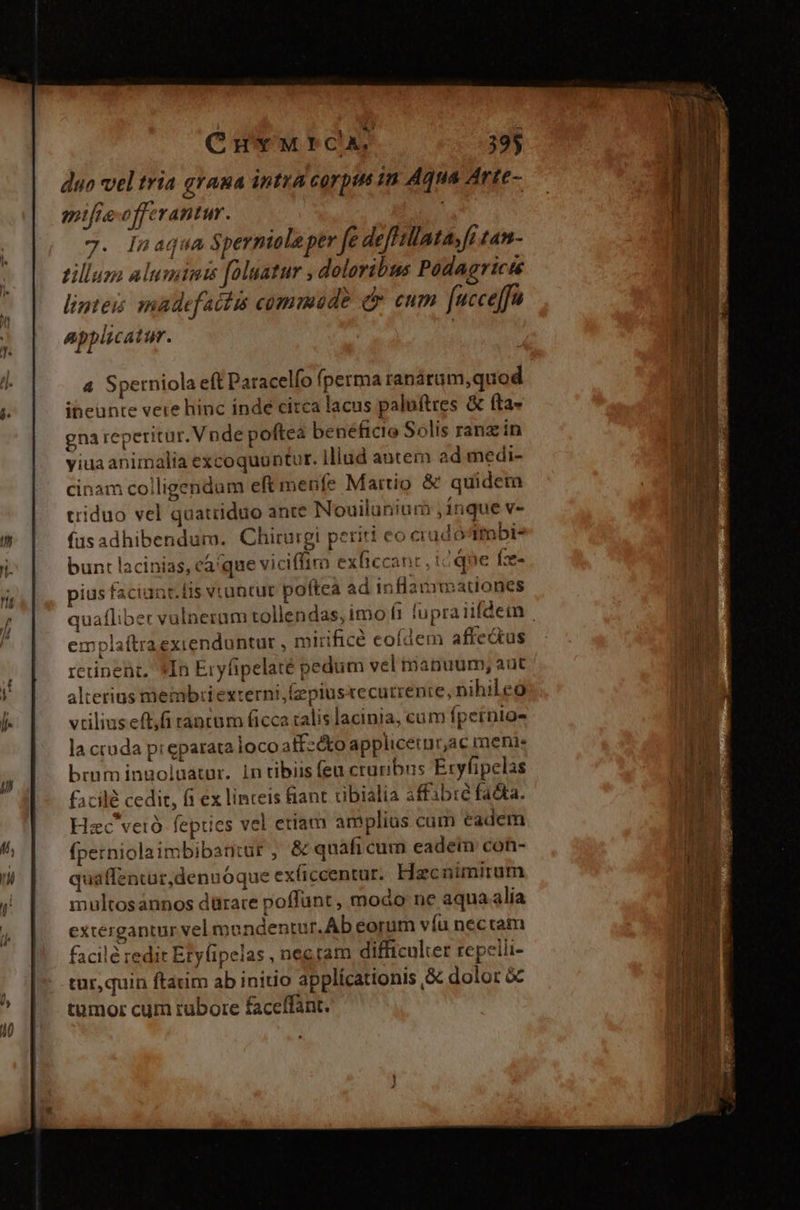 CHYMICA. 395
duo vel tria grana intra corpus in Aqua Arte-
misiæ offerantur.
7. In aqua Sperniolæ per se destillata, si tan-
tillum aluminis soluatur, doloribus Podagricis
linteis madefactis commodè & cum successu
applicatur.
a Sperniola est Paracelso sperma ranarum, quod
ineunte vere hinc inde circa lacus palustres & sta-
gna reperitur. Vnde postea beneficio Solis ranæ in
viua animalia excoquuntur. Illud autem ad medi-
cinam colligendum est mense Martio & quidem
triduo vel quatriduo ante Nouilunium, inque v-
sus adhibendum. Chirurgi periti eo crudo imbi-
bunt lacinias, eásque vicissim exsiccant, idque sæ-
pius faciunt. Iis vtuntur postea ad inflammationes
quaslibet vulnerum tollendas, imo si supra iisdem
emplastra extenduntur, mirificè eosdem affectus
retinent. In Erysipelate pedum vel manuum, aut
alterius membri externi, sæpius recurrente, nihil eo
vtilius est, si tantum sicca talis lacinia, cum spernio-
la cruda præparata loco affecto applicetur, ac mem-
brum inuoluatur. In tibiis seu cruribus Erysipelas
facilè cedit, si ex linteis fiant tibialia affabrè facta.
Hæc verò septies vel etiam amplius cum eadem
sperniola imbibantur, & quasi cum eadem con-
quassentur, denuóque exsiccentur. Hæc nimirum
multos annos durare possunt, modo ne aqua alia
extergantur vel mundentur. Ab eorum vsu nec tam
facilè redit Erysipelas, nec tam difficulter repelli-
tur, quin statim ab initio applicationis, & dolor &
tumor cum rubore facessant.